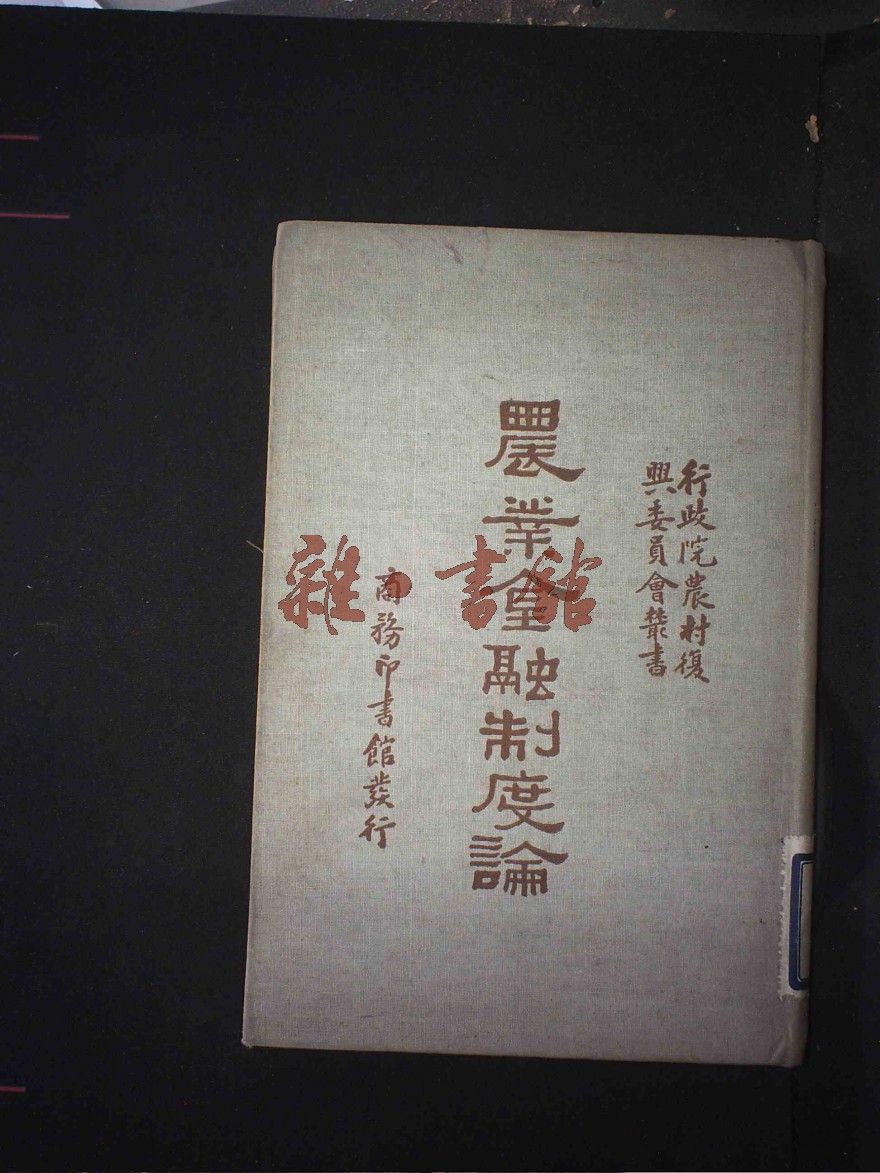 行政院農村復
興委員會叢書
農業金融制度論
商務印書館發行
雜·書館